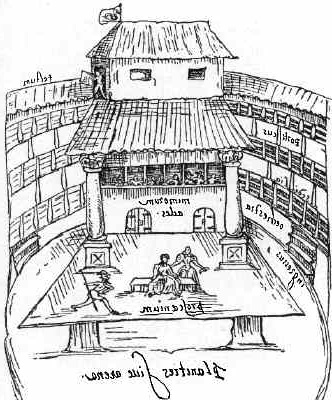 tectum
porticus
mimorum
ædes
orchestra
ingressus
proscænium
Planities siue arena.